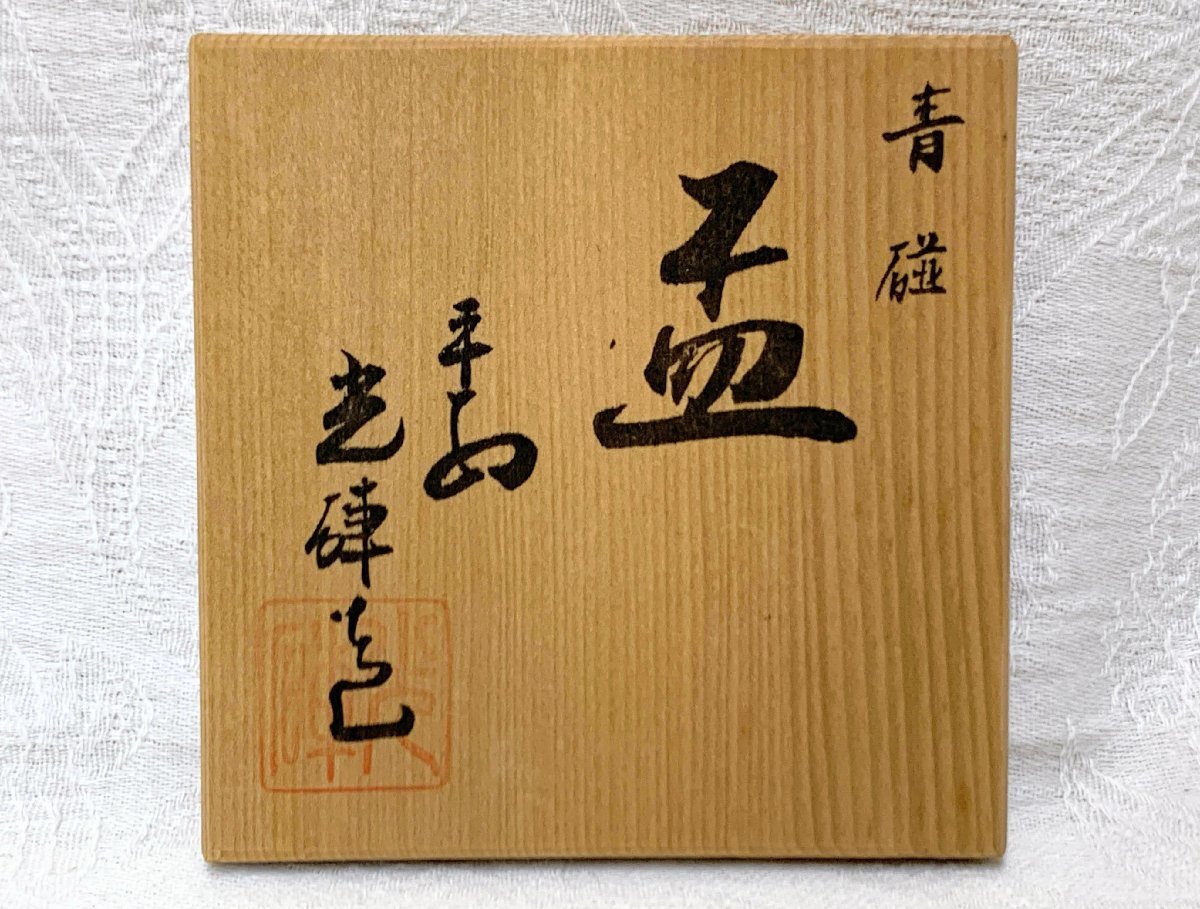 青磁
盃
平安
光 造